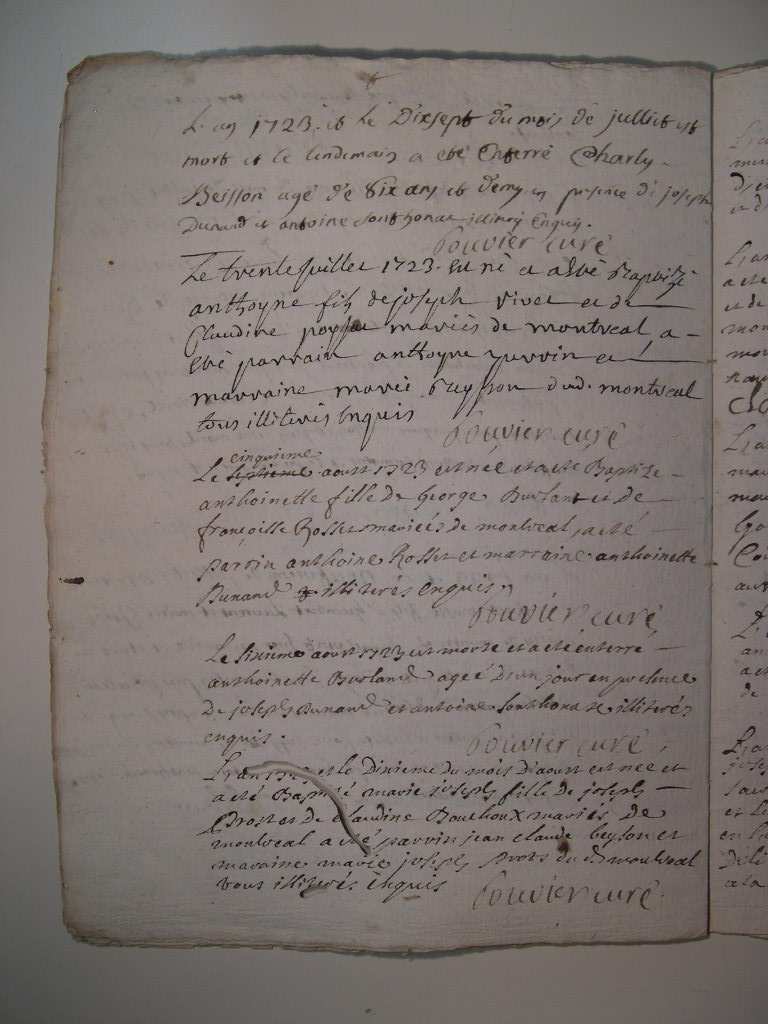 L'an 1723. et le Dixsept du mois de julliet est
mort et le lendemain a eté Enterré Charly
Beisson agé de six ans et demy en presence de joseph
Dunand et antoine Sonthonax Enquis.
Bouvier curé
Le trente juillet 1723. est né et a esté Baptizé
anthoyne fils de joseph vivet et de
Claudine mariés de montreal, a
esté parrain anthoyne et
marraine marie Beysson dud. montreal
tous illiterés Enquis
Bouvier curé
cinquieme
Le septieme aoust 1723 est née et a eté Baptize
anthoinette fille de George Burland et de
françoise Rosset mariés de montreal, a eté
parrin anthoine Rosset et marraine anthoinette
Dunand illiterés enquis
Bouvier curé
Le sixieme aoust 1723 est morte et a eté enterré
anthoinette Burland ageé d'un jour en presence
De joseph Dunand et antoine Sonthonaxe illiterés
enquis.
Bouvier curé
L'an 1723 et le Dixieme du mois d'aoust est née et
a eté Baptisé marie joseph fille de joseph
Prost et de Claudine Bouchoux mariés de
montreal a eté parrin jean claude Beyson et
maraine marie joseph prost du d montreal
tous illiterés enquis
Bouvier curé